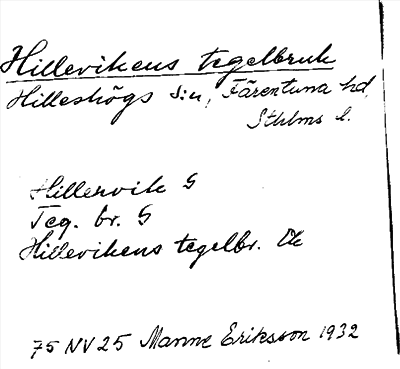 Hillevikens tegelbruk
Hilleshögs sn, Färentuna hd,
Sthlms l.
Hillervik G
Teg. br. G
Hillevikens tegelbr. Ek
75 NV 25 Manne Eriksson 1932